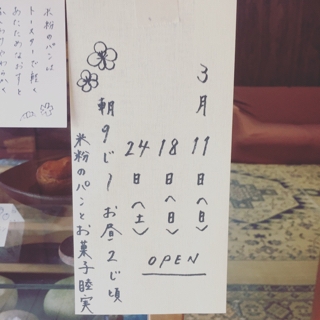 3月
11日(日)
18日(日)
24日(土)
OPEN
朝9じ〜お昼2じ頃
米粉のパンとお菓子睦実
米粉のパンは
トースターで軽く
あたためなおすと